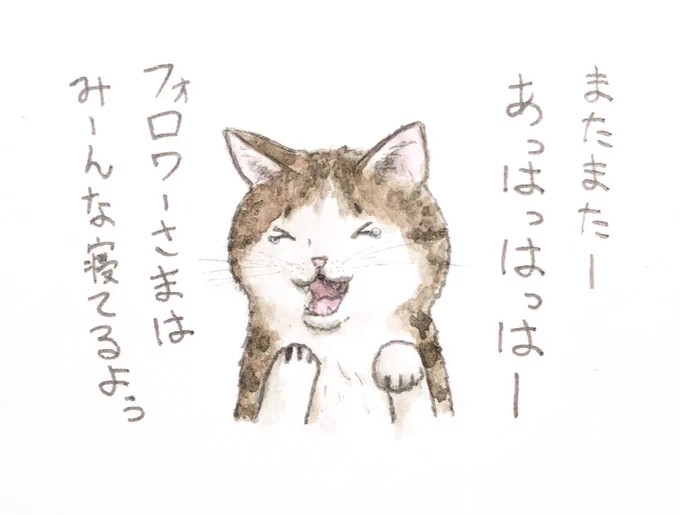 またまたー
あっはっはっはー
フォロワーさまは
みーんな寝てるよぅ